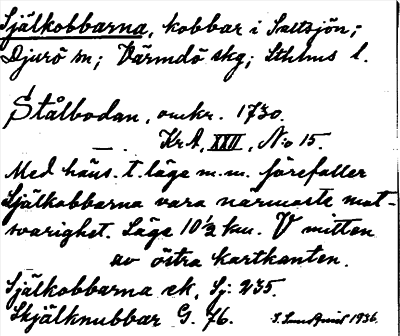 Själkobbarna, kobbar i Saltsjön;
Djurö sn; Värmdö skg; Sthlms l.
Stålbodan, omkr. 1730.
— . KrA, XXII, N:o 15.
Med häns. t. läge m.m. förefaller
Själkobbarna vara närmaste mot-
svarighet. Läge 10½ km. V mitten
av östra kartkanten.
Själkobbarna ek. Sj: 235.
Skjälknubbar G. 76. 1936.